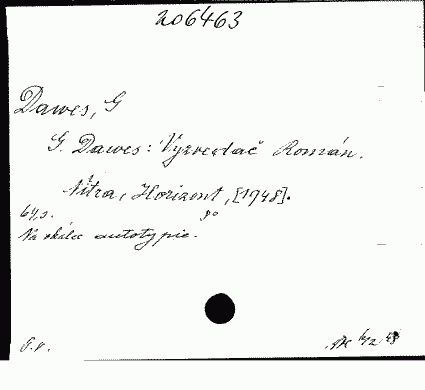 206463
Dawes, G
G. Dawes: Vyzvedač Román.
Nitra, Horizont, [1948].
64, s. 8°
Na obálce autotypie.